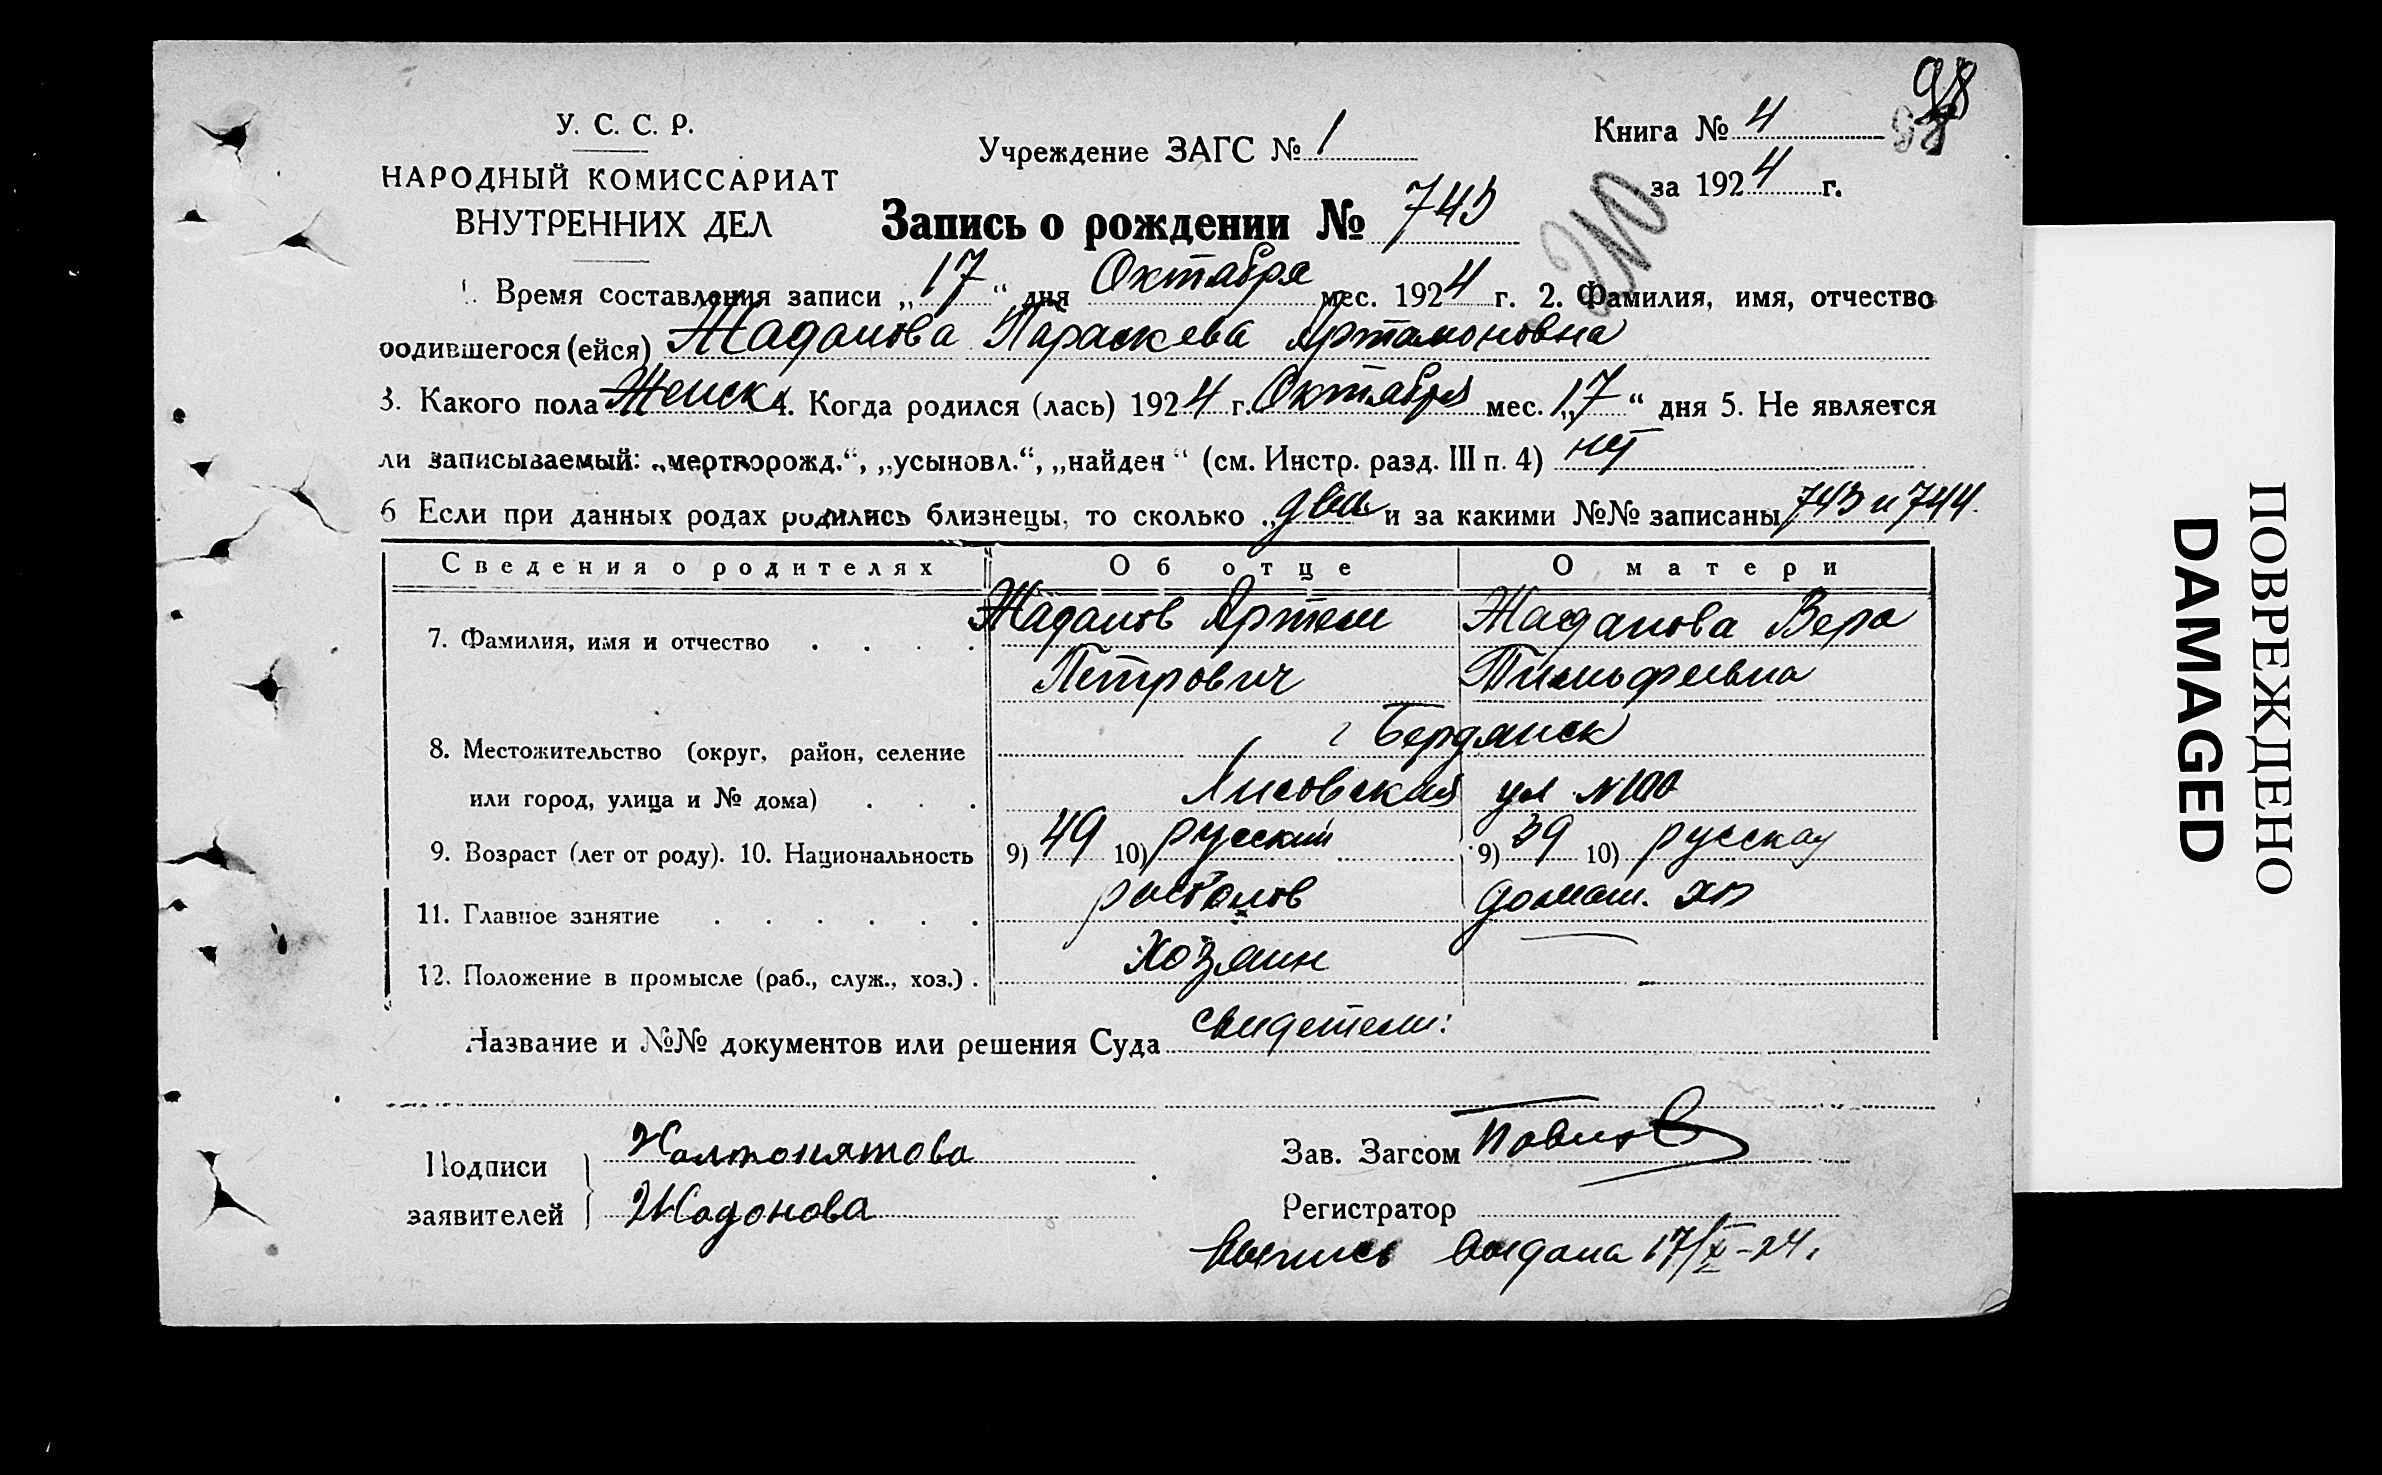 98
98
У. С. С. Р.
НАРОДНЫЙ КОМИССАРИАТ
ВНУТРЕННИХ ДЕЛ
Учреждение ЗАГС № 1
Книга № 4
за 1924 г.
Запись о рождении № 743
210
1. Время составления записи „17“ дня Октября мес. 1924 г. 2. Фамилия, имя, отчество
родившегося (ейся) Жаданова Параскева Артамоновна
3. Какого пола Женск 4. Когда родился (лась) 1924 г. Октября мес. „17“ дня 5. Не является
ли записываемый: „мертворожд.“, „усыновл.“, „найден“ (см. Инстр. разд. III п. 4) нет
6 Если при данных родах родились близнецы, то сколько „два и за какими №№ записаны 743 и 744.
Сведения о родителях Об отце О матери
7. Фамилия, имя и отчество . . . . Жаданов Артем Жаданова Вера
Петрович Тимофеевна
г Бердянск
8. Местожительство (округ, район, селение
или город, улица и № дома) . . . Лисовская ул №100
9. Возраст (лет от роду). 10. Национальность 9) 49 10) русский 9) 39 10) русская
11. Главное занятие . . . . . . рыболов домаш. хоз
12. Положение в промысле (раб., служ., хоз.) . Хозяин
Название и №№ документов или решения Суда свидетели:
Подписи
заявителей
Жадонова
Зав. Загсом
Регистратор
Выпись выдана 17/X-24.
ПОВРЕЖДЕНО
DAMAGED